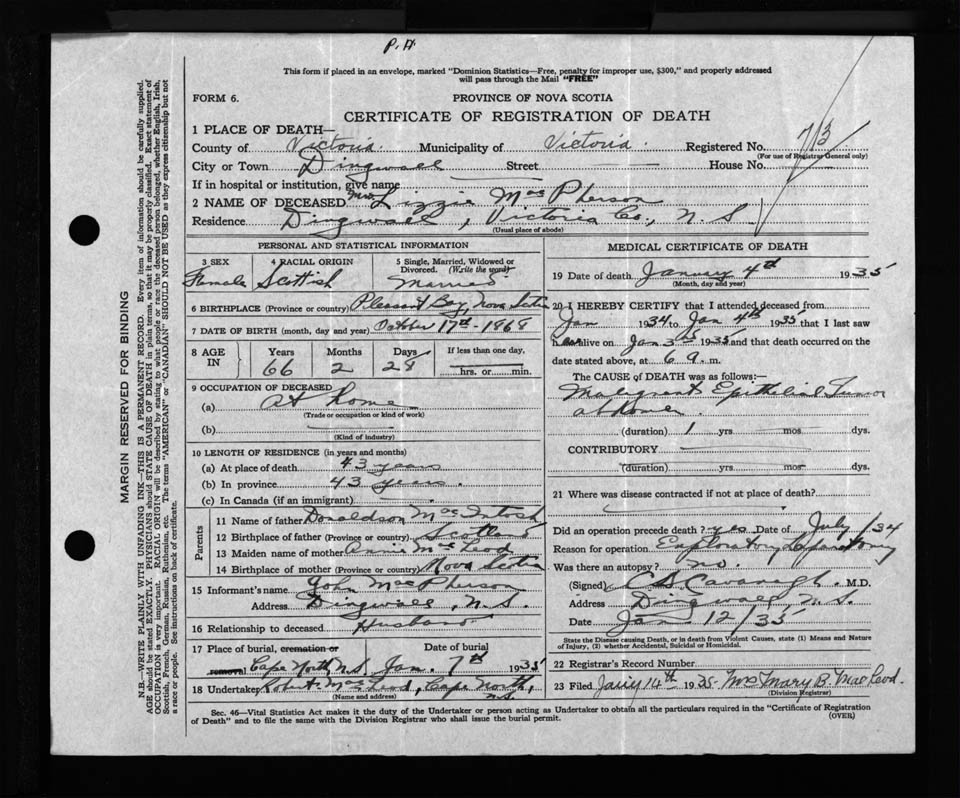 P.H.
This form if placed in an envelope, marked "Dominion Statistics—Free, penalty for improper use, $300," and properly addressed
will pass through the Mail "FREE"
FORM 6.
PROVINCE OF NOVA SCOTIA
CERTIFICATE OF REGISTRATION OF DEATH
1 PLACE OF DEATH—
County of Victoria. Municipality of Victoria. Registered No. 73
(For use of Registrar General only)
City or Town Dingwall Street House No.
If in hospital or institution, give name
2 NAME OF DECEASED Mrs Lizzie MacPherson
Residence Dingwall, Victoria Co., N. S
(Usual place of abode)
PERSONAL AND STATISTICAL INFORMATION
3 SEX 4 RACIAL ORIGIN 5 Single, Married, Widowed or Divorced. (Write the word)
Female Scottish Married
6 BIRTHPLACE (Province or country) Pleasant Bay, Nova Scotia
7 DATE OF BIRTH (month, day and year) October 17th - 1868
8 AGE IN Years Months Days If less than one day,
66 2 28 hrs. or min.
9 OCCUPATION OF DECEASED
(a) At Home
(Trade or occupation or kind of work)
(b)
(Kind of industry)
10 LENGTH OF RESIDENCE (in years and months)
(a) At place of death 43 years
(b) In province 43 years.
(c) In Canada (if an immigrant)
Parents
11 Name of father Donaldson MacIntosh
12 Birthplace of father (Province or country) Scotland
13 Maiden name of mother Annie McLeod
14 Birthplace of mother (Province or country) Nova Scotia
15 Informant's name John MacPherson
Address Dingwall, N.S.
16 Relationship to deceased Husband
17 Place of burial, cremation or removal Date of burial
Cape North, N.S. Jan. 7th 1935
18 Undertaker Robert MacLeod, Cape North,
(Name and address) N.S.
MEDICAL CERTIFICATE OF DEATH
19 Date of death January 4th 1935
(Month, day and year)
20 I HEREBY CERTIFY that I attended deceased from
Jan 1934 to Jan 4th 1935 that I last saw
her alive on Jan 3rd 1935 and that death occurred on the
date stated above, at 6 a. m.
The CAUSE of DEATH was as follows:—
Malignant Epithelial Tumor
abdomen.
(duration) 1 yrs mos dys.
CONTRIBUTORY
(duration) yrs mos dys.
21 Where was disease contracted if not at place of death?
Did an operation precede death? yes Date of July /34
Reason for operation Exploratory Laparotomy
Was there an autopsy? no.
(Signed) C S Cavanagh. M.D.
Address Dingwall N.S.
Date Jan 12/35
State the Disease causing Death, or in death from Violent Causes, state (1) Means and Nature
of Injury, (2) whether Accidental, Suicidal or Homicidal.
22 Registrar's Record Number
23 Filed Jany 14th 1935 Mrs Mary B. MacLeod.
(Division Registrar)
Sec. 46—Vital Statistics Act makes it the duty of the Undertaker or person acting as Undertaker to obtain all the particulars required in the "Certificate of Registration
of Death" and to file the same with the Division Registrar who shall issue the burial permit.
(OVER)
MARGIN RESERVED FOR BINDING
N.B.—WRITE PLAINLY WITH UNFADING INK—THIS IS A PERMANENT RECORD. Every item of information should be carefully supplied.
AGE should be stated EXACTLY. PHYSICIANS should STATE CAUSE OF DEATH in plain terms, so that it may be properly classified. Exact statement of
OCCUPATION is very important. RACIAL ORIGIN will be described by stating to what people or race the deceased person belonged, whether English, Irish,
Scottish, French, German, Russian, Ruthenian, etc. The terms "AMERICAN" or "CANADIAN" SHOULD NOT BE USED as they express citizenship but not
a race or people. See instructions on back of certificate.